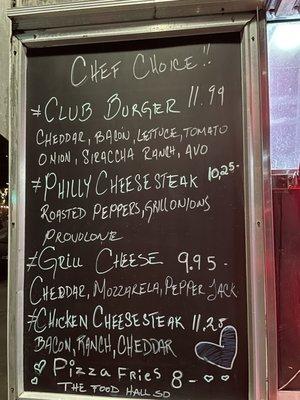 CHEF CHOICE!!
#CLUB BURGER 11.99
CHEDDAR, BACON, LETTUCE, TOMATO
ONION, SIRACCHA RANCH, AVO
#PHILLY CHEESESTEAK 10.25-
ROASTED PEPPERS, GRILL ONIONS
PROVOLONE
#GRILL CHEESE 9.95-
CHEDDAR, MOZZARELA, PEPPER JACK
#CHICKEN CHEESESTEAK 11.25
BACON, RANCH, CHEDDAR
PIZZA FRIES 8-
THE FOOD HALL SD